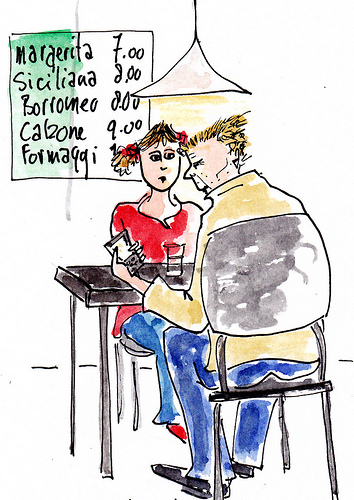 Margerita 7.00
Siciliana 8.00
Borromeo 8.00
Calzone 9.00
Formaggi